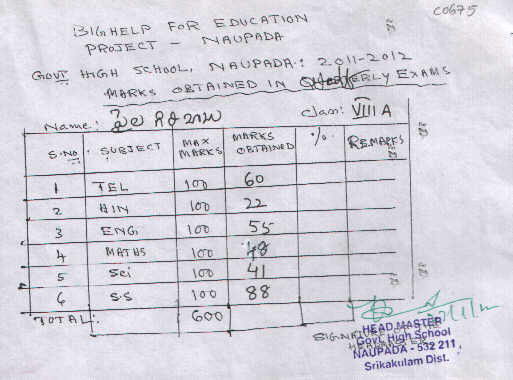 C0675
BIGHELP FOR EDUCATION
PROJECT - NAUPADA
GOVT HIGH SCHOOL, NAUPADA: 2011-2012
MARKS OBTAINED IN QUARTERLY EXAMS
Name: పైల గిరిబాబు Class: VIII A
S.NO SUBJECT MAX MARKS MARKS OBTAINED % REMARKS
1 TEL 100 60
2 HIN 100 22
3 ENG 100 55
4 MATHS 100 48
5 Sci 100 41
6 S.S 100 88
TOTAL: 600
SIGNATURE OF THE
HEAD MASTER
Govt. High School
NAUPADA - 532 211,
Srikakulam Dist.